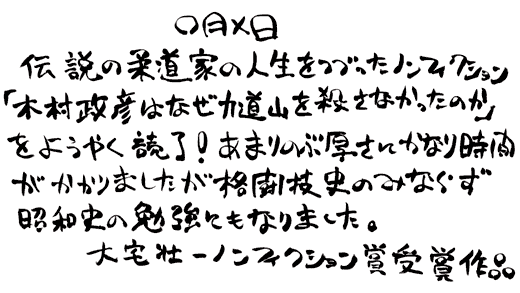 〇月×日
伝説の柔道家の人生をつづったノンフィクション
「木村政彦はなぜ力道山を殺さなかったのか」
をようやく読了！あまりのぶ厚さにかなり時間
がかかりましたが格闘技史のみならず
昭和史の勉強にもなりました。
大宅壮一ノンフィクション賞受賞作品